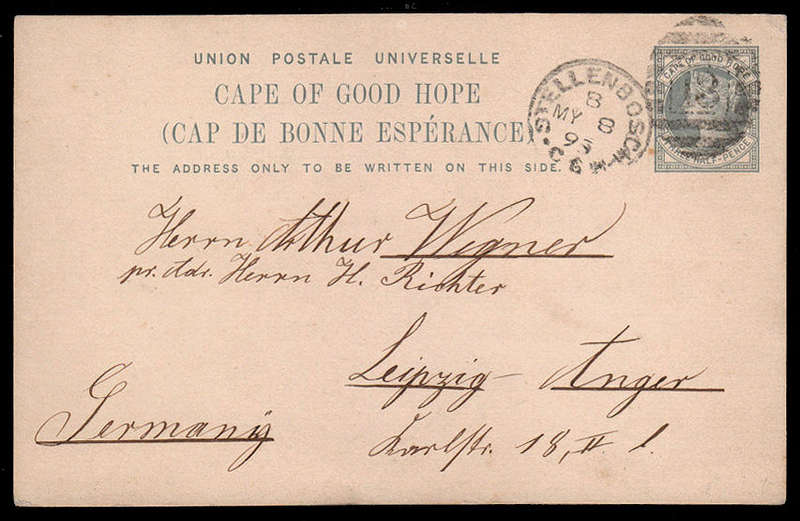 UNION POSTALE UNIVERSELLE
CAPE OF GOOD HOPE
(CAP DE BONNE ESPÉRANCE)
THE ADDRESS ONLY TO BE WRITTEN ON THIS SIDE.
STELLENBOSCH
8
MY 8
95
C.G.H
CAPE OF GOOD HOPE
HALF-PENCE
Herrn Arthur Wegner
pr. Adr. Herrn H. Richter
Leipzig-Anger
Karlstr. 18, II. l.
Germany